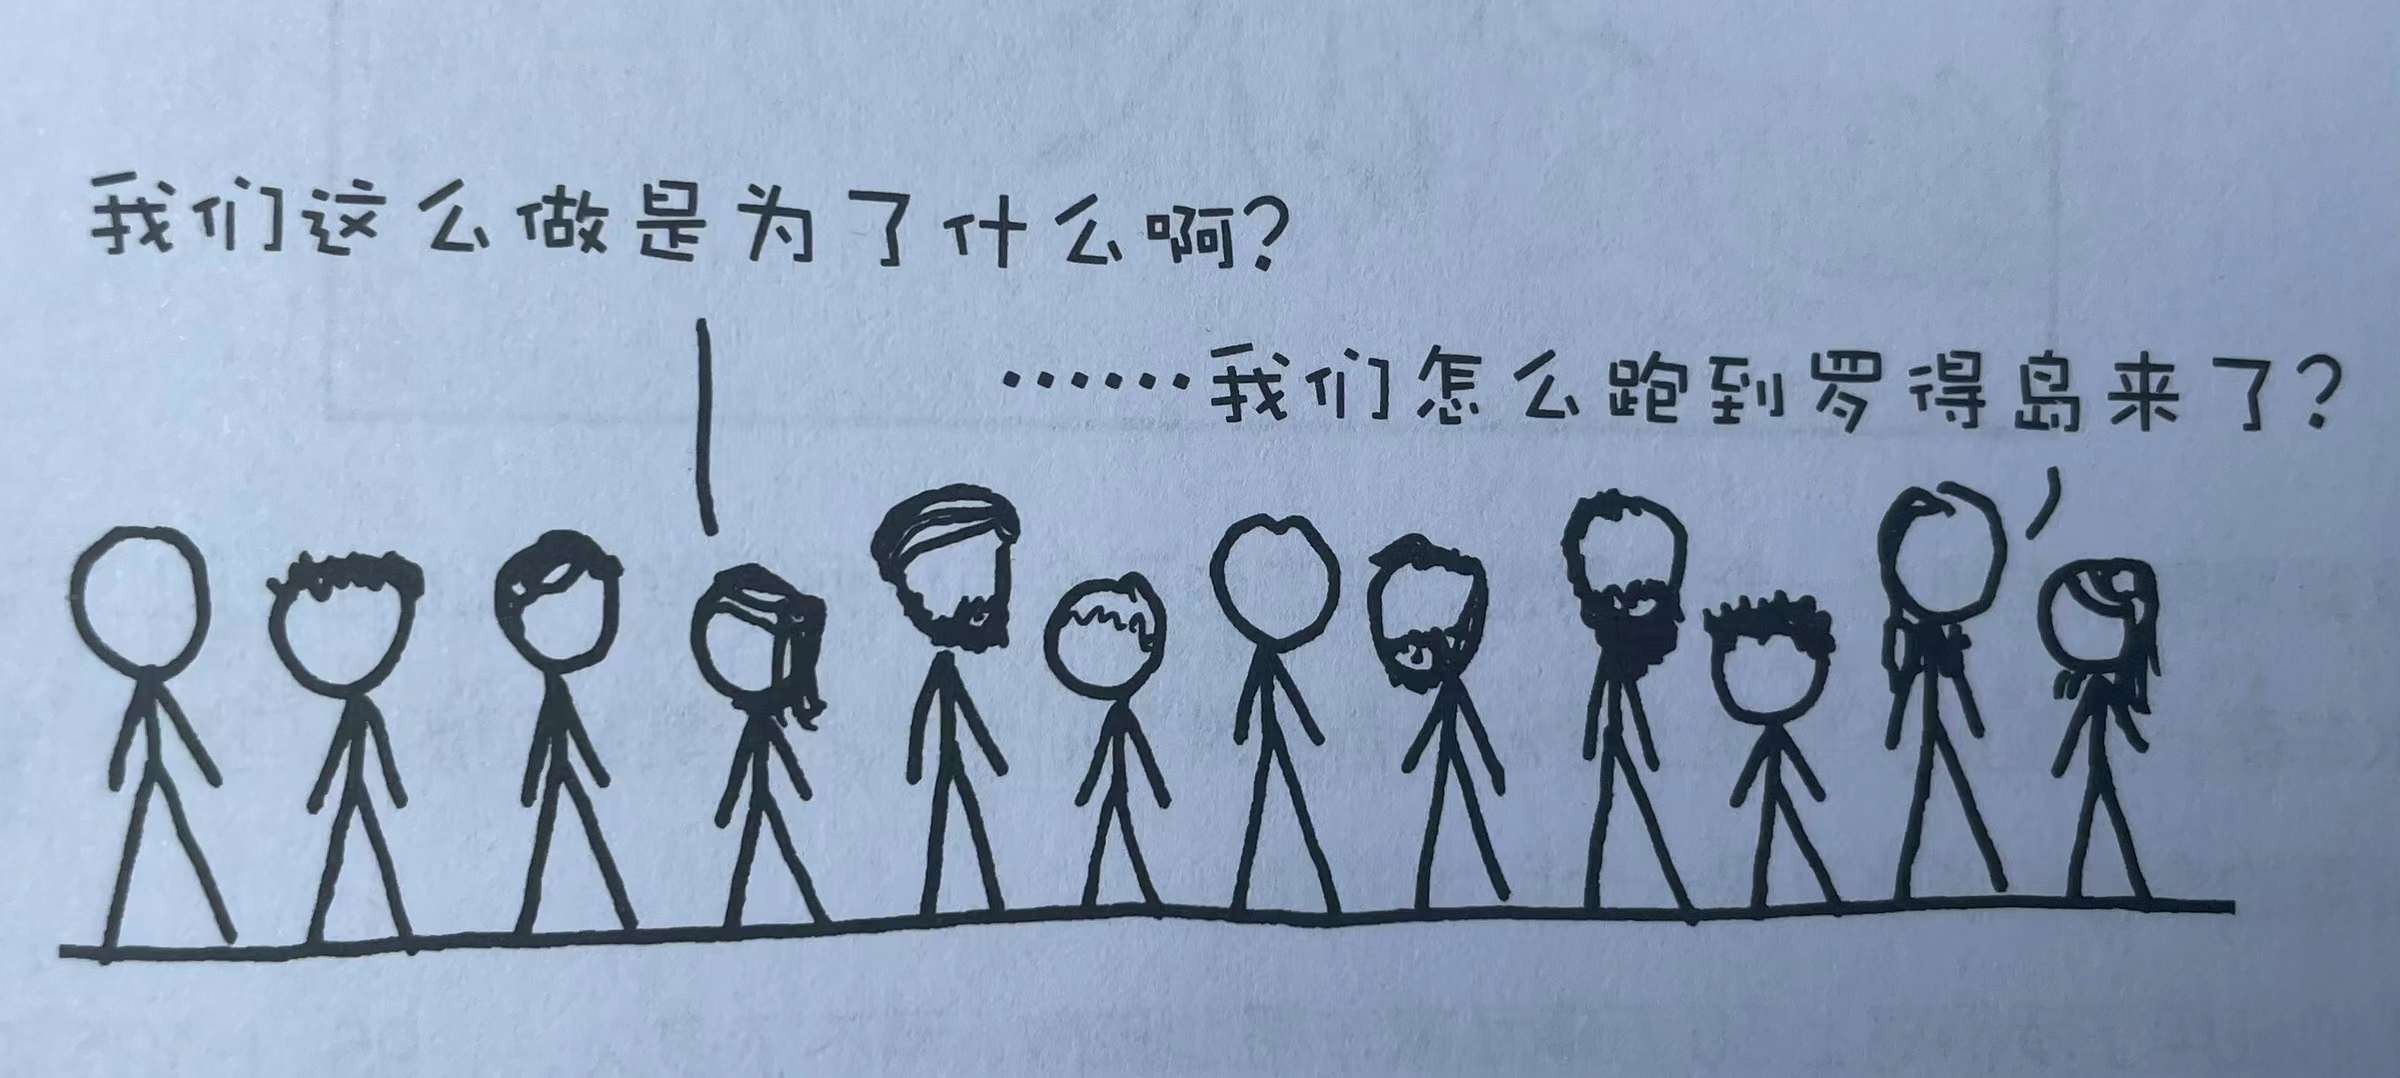 我们这么做是为了什么啊?
……我们怎么跑到罗得岛来了?